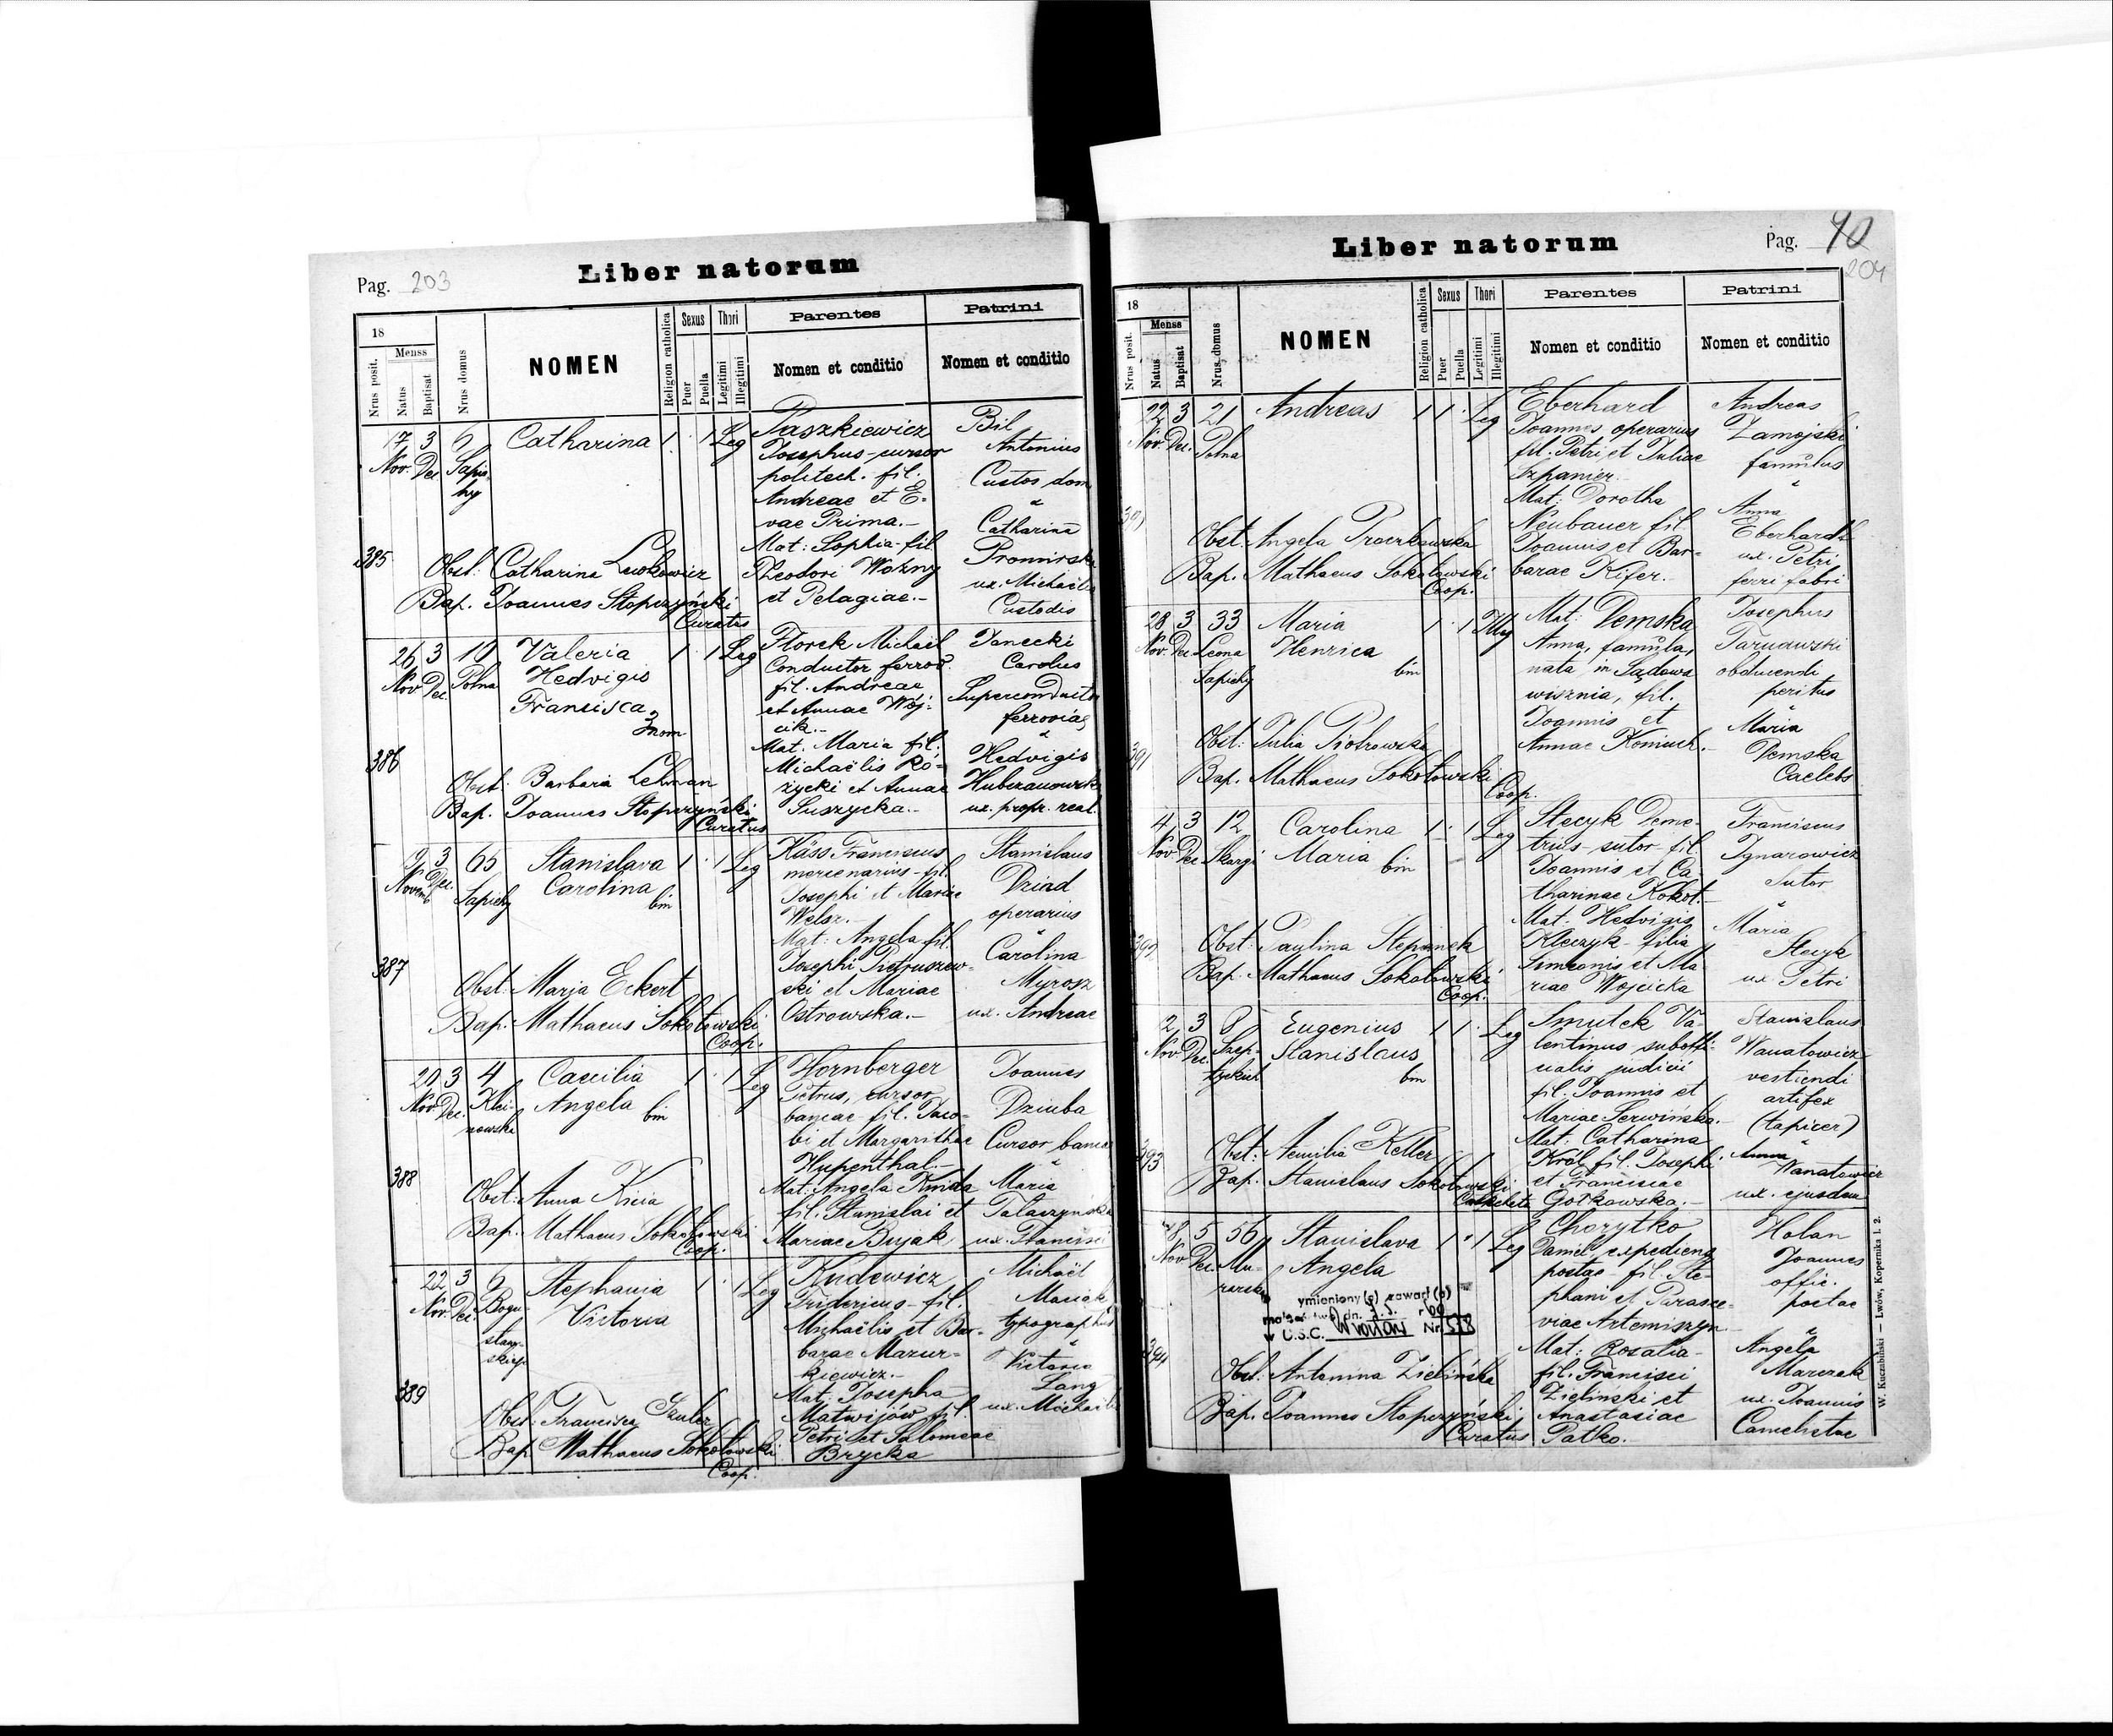 Pag. 203
Liber natorum
18
Menss
Nrus posit.
Natus
Baptisat
Nrus domus
NOMEN
Religion catholica
Sexus
Puer
Puella
Thori
Legitimi
Illegitimi
Parentes
Nomen et conditio
Patrini
Nomen et conditio
17 3 6 Catharina 1 . 1 Leg
Nov. Dec Sapie
hy
Paszkiewicz
Josephus-cursor
politech. fil.
Andreae et E-
vae Prima.-
Mat: Sophia-fil
Theodori Wozny
et Pelagiae.-
Bil
Antonius
Custos dom
"
Catharina
ux. Michaëlis
Custodis
385
Obst: Catharina Lewkowicz
Bap. Joannes Stopczyński
Curatus
26 3 19 Valeria 1 . 1 Leg
Nov Dec Polna Hedvigis
Francisca
3nom
Florek Michaël
Conductor ferrov.
fil. Andreae
et Annae Wój-
cik.-
Mat. Maria fil.
Michaëlis Ró-
życki et Annae
Suszycka.-
Janecki
Carolus
Superconductor
ferrovias
"
Hedvigis
ux. propr. real.
386
Obst. Barbara Lehman
Bap. Joannes Stopczyński
Curatus
3 65 Stanislava 1 . 1 Leg
Novemb Dec. Sapiehy Carolina
bin
Käss Franciscus
mercenarius-fil.
Josephi et Mariae
Mat: Angela fil.
Josephi Pietruszew-
ski et Mariae
Ostrowska.-
Stanislaus
Dziad
operarius
"
Carolina
Myrosz
ux. Andreae
387
Obst: Maria Eckert
Bap. Mathaeus Sokołowski
Coop.
20 3 4 Caecilia 1 . 1 Leg
Nov Dec. Klei-
nowski
Angela
bin
Hornberger
Petrus, cursor
bancae fil. Jaco-
bi et Margarithae
Hupenthal.-
Mat: Angela Kmida
fil. Stanislai et
Mariae Bujak
Joannes
Dziuba
Cursor bancae
"
Maria
ux. Francisci
388
Obst: Anna Kicia
Bap. Mathaeus Sokołowski
Coop.
22 3 6 Stephania 1 . 1 Leg
Nov. Dec. Bogu-
sław-
skiego
Victoria
Kudewicz
Fridericus-fil.
Michaëlis et Bar-
barae Mazur-
kiewicz.-
Mat: Josepha
Matwijów fil.
Petri et Salomeae
Brycka
Michaël
Masiak
typographus
"
Victoria
Lang
ux. Michaëlis
389
Obst. Francisca
Bap. Mathaeus Sokołowski
Coop.
Pag. 40
204
Liber natorum
18
Menss
Nrus posit.
Natus
Baptisat
Nrus domus
NOMEN
Religion catholica
Sexus
Puer
Puella
Thori
Legitimi
Illegitimi
Parentes
Nomen et conditio
Patrini
Nomen et conditio
22 3 21 Andreas 1 1 . Leg
Nov. Dec. Polna
Eberhard
Joannes operarius
fil. Petri et Juliae
Szpanier
Mat: Dorotha
Neubauer fil
Joannis et Bar-
barae Kifer.
Andreas
Zamojski
famulus
"
Anna
Eberhardt
ux. Petri
ferri fabri
Obst. Angela Proczkowska
Bap. Mathaeus Sokołowski
Coop.
28 3 33 Maria 1 . 1 Illeg
Nov. Dec Leona
Sapiehy
Henrica
bin
Mat: Demska
Anna, famula,
nata in Sądowa
wisznia, fil.
Joannis et
Annae Koniuch.
Josephus
Tarnawski
obducendi
peritus
"
Maria
Demska
Caelebs
391
Obst: Julia Piotrowska
Bap. Mathaeus Sokołowski
Coop.
4 3 12 Carolina 1 . 1 Leg
Nov Dec Skargi Maria
bin
Stecyk Deme-
trius-sutor fil.
Joannis et Ca-
tharinae Kokot.
Mat: Hedvigis
Kleczyk-filia
Simeonis et Ma
riae Wojcicka
Franciscus
Ignarowicz
Sutor
"
Maria
Stecyk
ux Petri
392
Obst: Paulina Stepanek
Bap. Mathaeus Sokołowski
Coop.
2 3 8 Eugenius 1 1 . Leg
Nov Dec. Szep-
tyckich
Stanislaus
bin
Smutek Va-
lentinus suboffi-
cialis judicii
fil. Joannis et
Mariae Serwińska.-
Mat: Catharina
Król fil. Josephi
et Franciscae
Gołkowska.-
Stanislaus
Wanatowicz
vestiendi
artifex
(tapicer)
"
Anna
Wanatowicz
ux. ejusdem
393
Obst: Aemilia Keller
Bap. Stanislaus Sokołowski
Catecheta
18 5 56 Stanislava 1 . 1 Leg
Nov Dec. Mu-
rarska
Angela
ymieniony(a) zawarł(a)
w U.S.C. Nr 578
Chorytko
Daniel, expediens
postae fil. Ste-
phani et Parasce-
viae Artemiszyn
Mat: Rosalia-
fil. Francisci
Zielinski et
Anastasiae
Patko.
Holan
Joannes
offic.
postae
"
Angela
Marczak
ux. Joannis
394
Obst. Antonina Zielińska
Bap. Joannes Stopczyński
Curatus
W. Kuczabiński — Lwów, Kopernika l. 2.